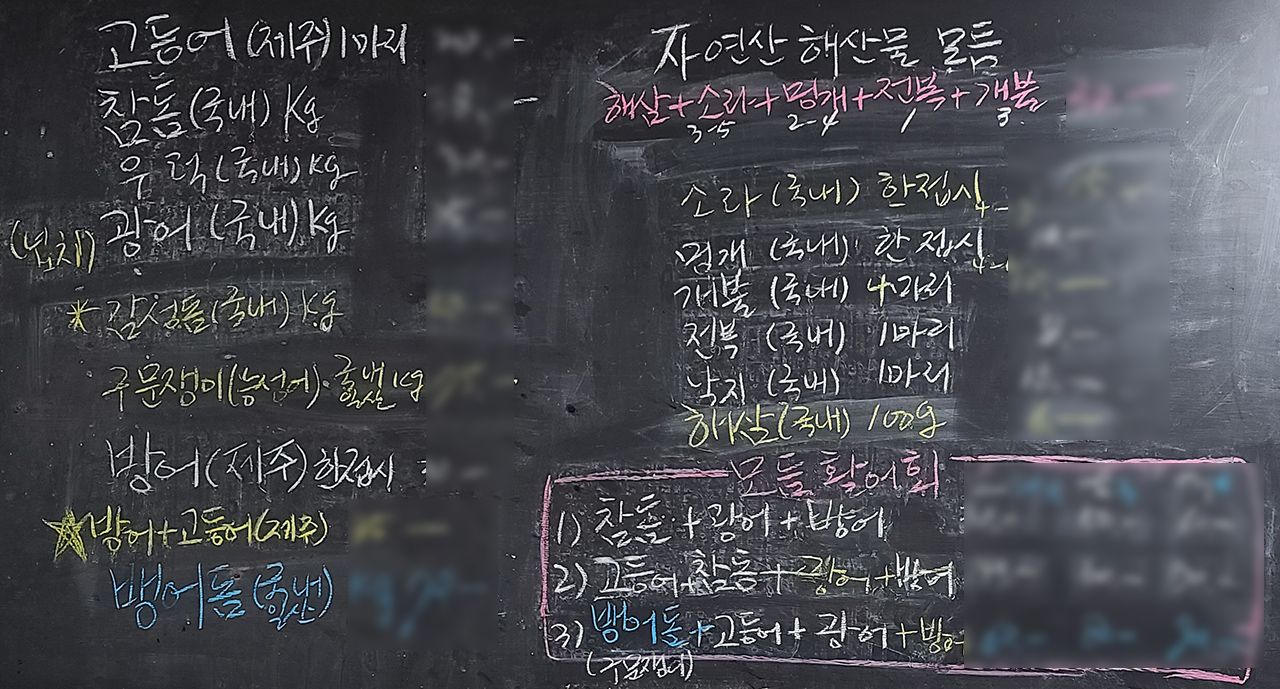 고등어(제주)1마리
참돔(국내) Kg
우럭(국내)Kg
광어(국내)Kg
(넙치)
감성돔(국내) Kg
구문쟁이(능성어)·국내산 1Kg
방어(제주)한접시
방어+고등어(제주)
뱅어돔(국내산)
자연산 해산물 모듬
해삼+소라+멍게+전복+개불
3-5 2-4 1 3
소라(국내) 한접시
멍개(국내) 한접시
개불(국내) 4마리
전복(국내) 1마리
낙지(국내) 1마리
해삼(국내) 100g
모듬활어회
1) 참돔+광어+방어
2) 고등어+참돔+광어+방어
3) 뱅어돔+고등어+광어+방어
(구문쟁이)